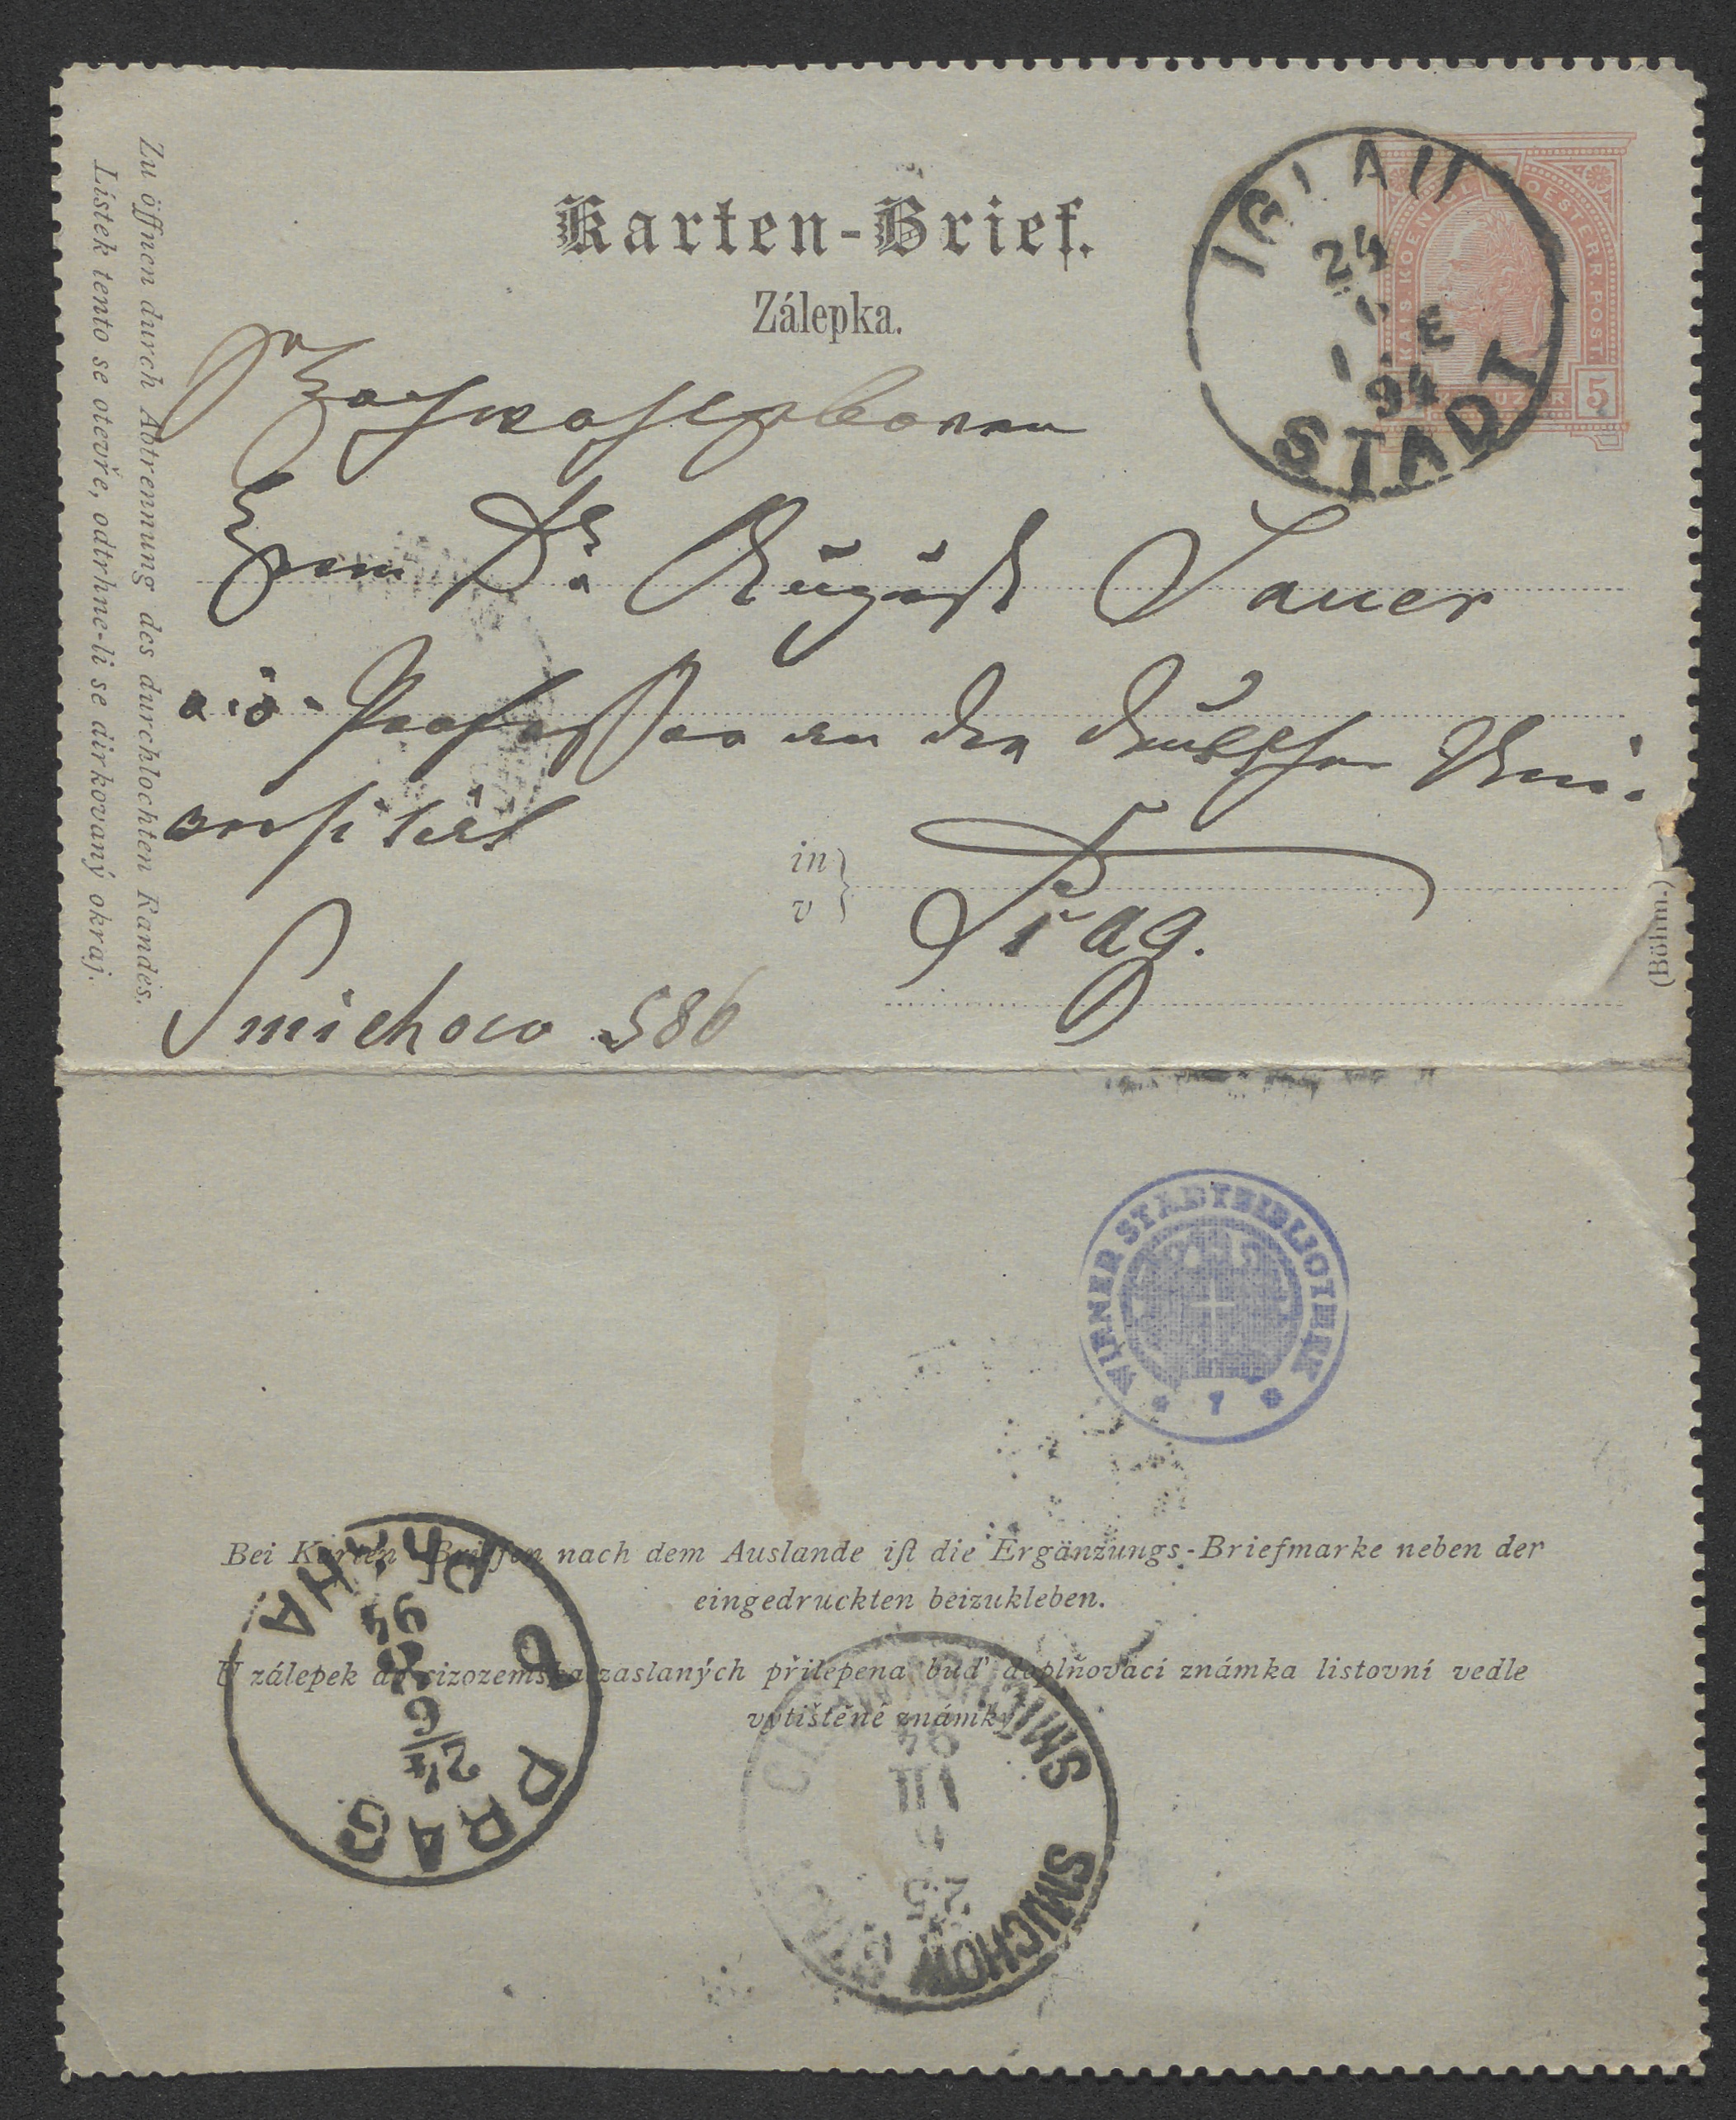 Karten-Brief.
Zálepka.
KAIS. KOENIGL. OESTERR. POST.
5
IGLAU
24
E
94
STADT
Zu öffnen durch Abtrennung des durchlochten Randes.
Lístek tento se otevře, odtrhne-li se dirkovaný okraj.
Hochwohlgeboren
Herrn Dr. August Sauer
a. ö. Professor an der deutschen Uni-
versität
in
v
Prag.
(Böhm.)
Smichow 586
WIENER STADTBIBLIOTHEK
Bei Karten-Briefen nach dem Auslande ist die Ergänzungs-Briefmarke neben der
eingedruckten beizukleben.
U zálepek do cizozemska zaslaných přilepena buď doplňovací známka listovní vedle
vytištěné známky.
PRAG
PRAHA
24
6
94
SMICHOW
SMICHOV
25
6
94